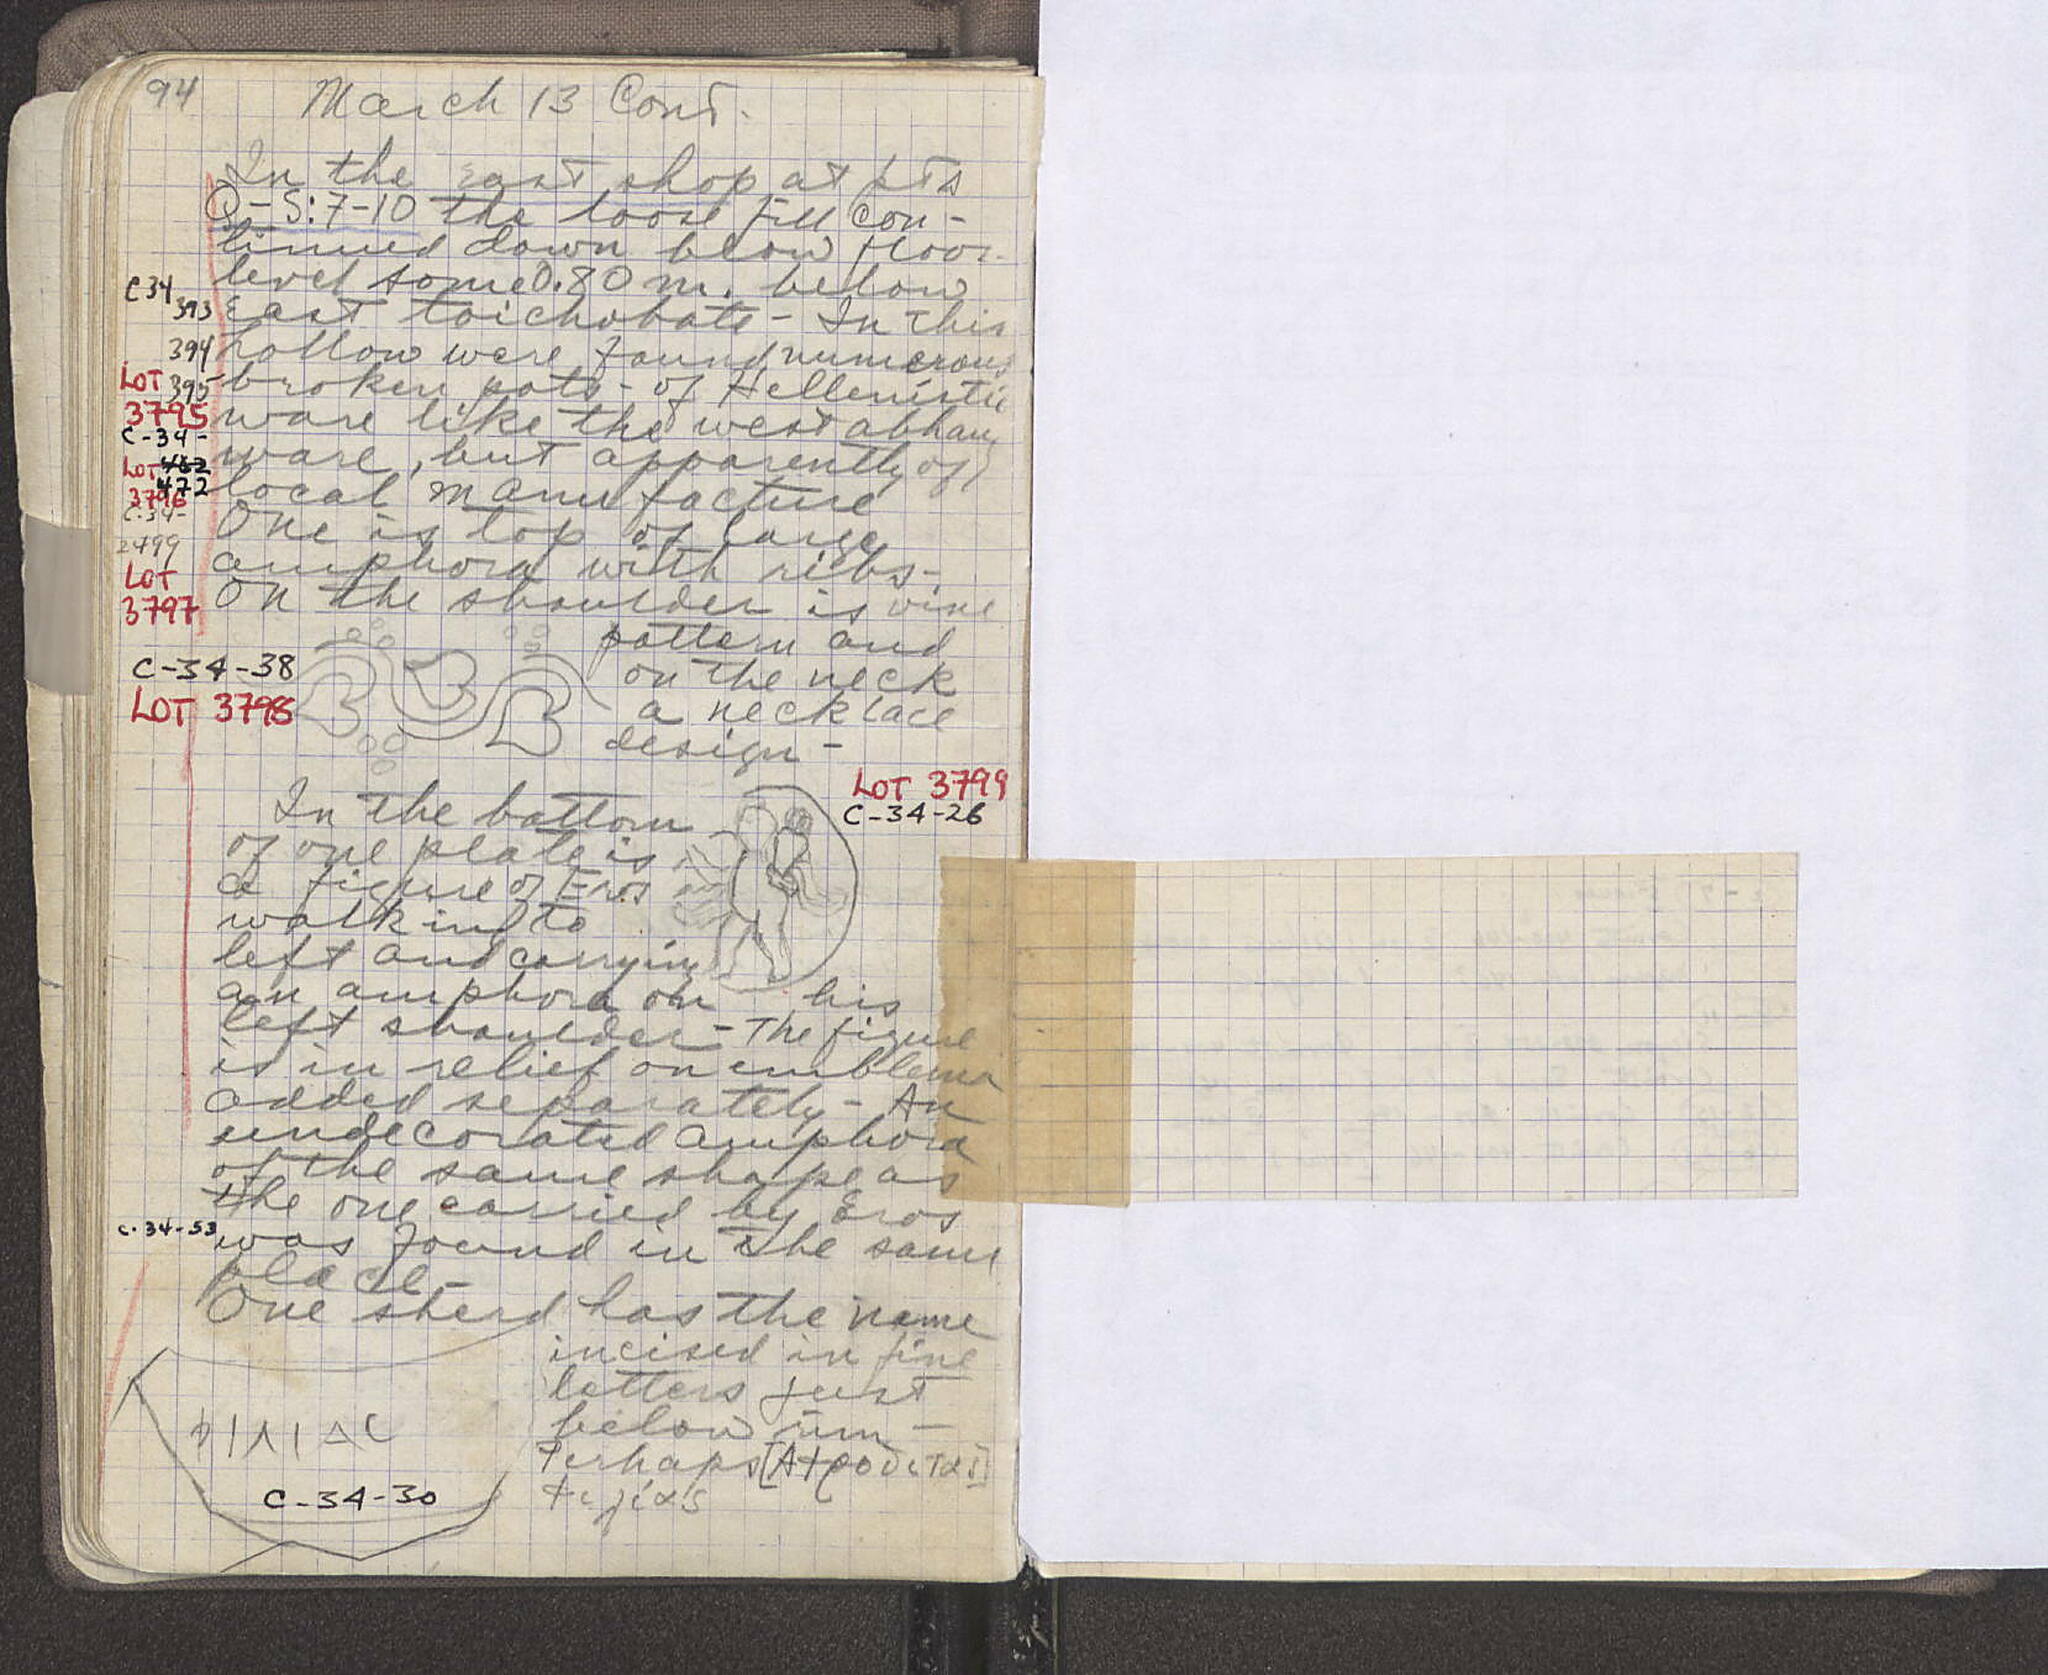 94
March 13 Cont.
In the East shop at pts
Q-S:7-10 the loose fill con-
tinued down below floor
level some 0.80 m. below
C34
393
East toichobate - In this
394
hollow were found numerous
LOT
395
broken pots - of Hellenistic
3795
ware like the west abhang
C-34-
ware, but apparently of
LOT 462
472
3796
local manufacture
C-34-
One is top of large
2499
amphora with ribs -
LOT
3797
On the shoulder is vine
pattern and
C-34-38
on the neck
LOT 3798
a necklace
design -
LOT 3799
C-34-26
In the bottom
of one plate is
a figure of Eros
walking to
left and carrying
an amphora on his
left shoulder - The figure
is in relief on emblema
added separately - An
undecorated amphora
of the same shape as
the one carried by Eros
C-34-53
was found in the same
place -
One sherd has the name
incised in fine
letters just
below rim -
Perhaps
C-34-30